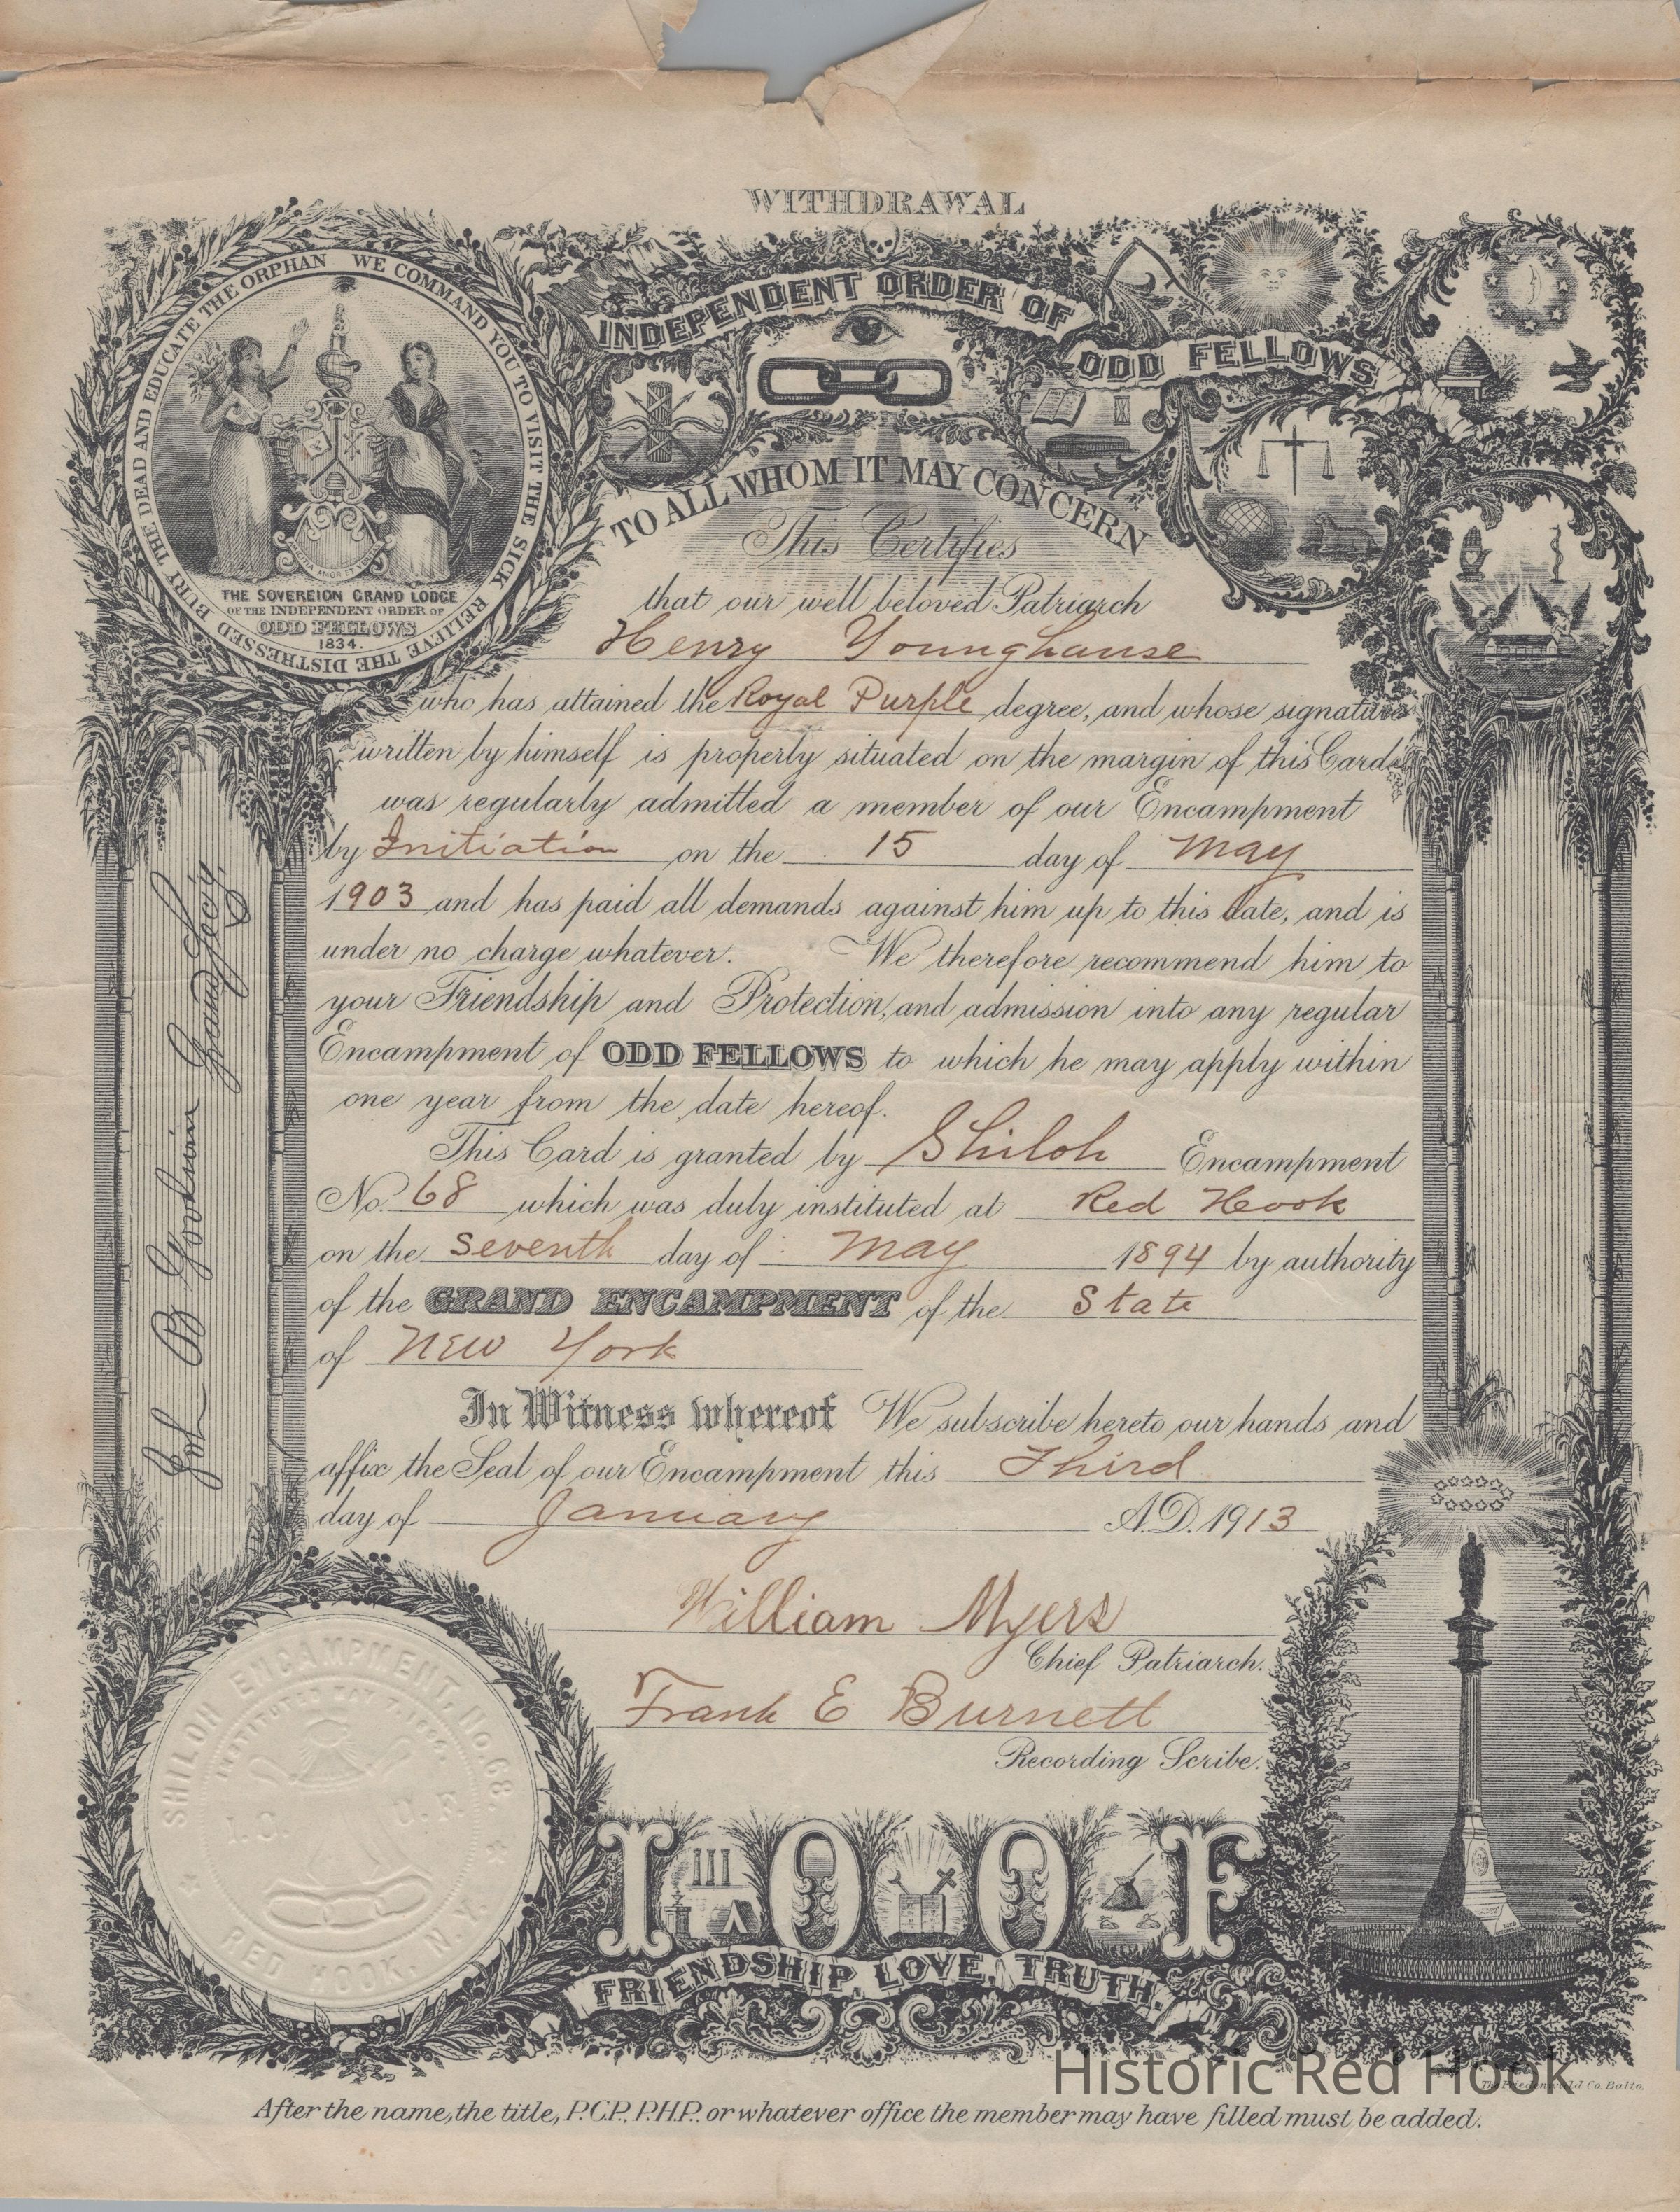 WITHDRAWAL
INDEPENDENT ORDER OF
ODD FELLOWS
WE COMMAND YOU TO VISIT THE SICK RELIEVE THE DISTRESSED BURY THE DEAD AND EDUCATE THE ORPHAN
THE SOVEREIGN GRAND LODGE
OF THE INDEPENDENT ORDER OF
ODD FELLOWS
1834.
TO ALL WHOM IT MAY CONCERN
This Certifies
that our well beloved Patriarch
Henry Younghanse
who has attained the Royal Purple degree, and whose signature
written by himself is properly situated on the margin of this Card
was regularly admitted a member of our Encampment
by Initiation on the 15 day of May
1903 and has paid all demands against him up to this date, and is
under no charge whatever. We therefore recommend him to
your Friendship and Protection, and admission into any regular
Encampment of ODD FELLOWS to which he may apply within
one year from the date hereof.
This Card is granted by Shiloh Encampment
No. 68 which was duly instituted at Red Hook
on the Seventh day of May 1894 by authority
of the GRAND ENCAMPMENT of the State
of New York
In Witness whereof We subscribe hereto our hands and
affix the Seal of our Encampment this Third
day of January A.D. 1913
William Myers
Chief Patriarch.
Frank E Burnett
Recording Scribe.
John B Goodwin Grand Secy.
SHILOH ENCAMPMENT, No 68.
INSTITUTED MAY 7, 1894.
I. O. O. F.
RED HOOK, N.Y.
I O O F
FRIENDSHIP, LOVE, TRUTH.
Historic Red Hook
The Friedenwald Co. Balto.
After the name, the title, P.C.P., P.H.P., or whatever office the member may have filled must be added.